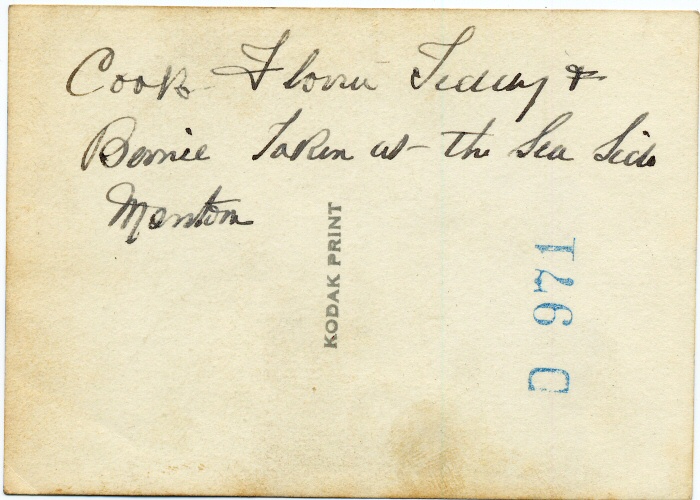 Cook Florrie Teddy &
Bernie Taken at the Sea Side
Menton
KODAK PRINT
D 971